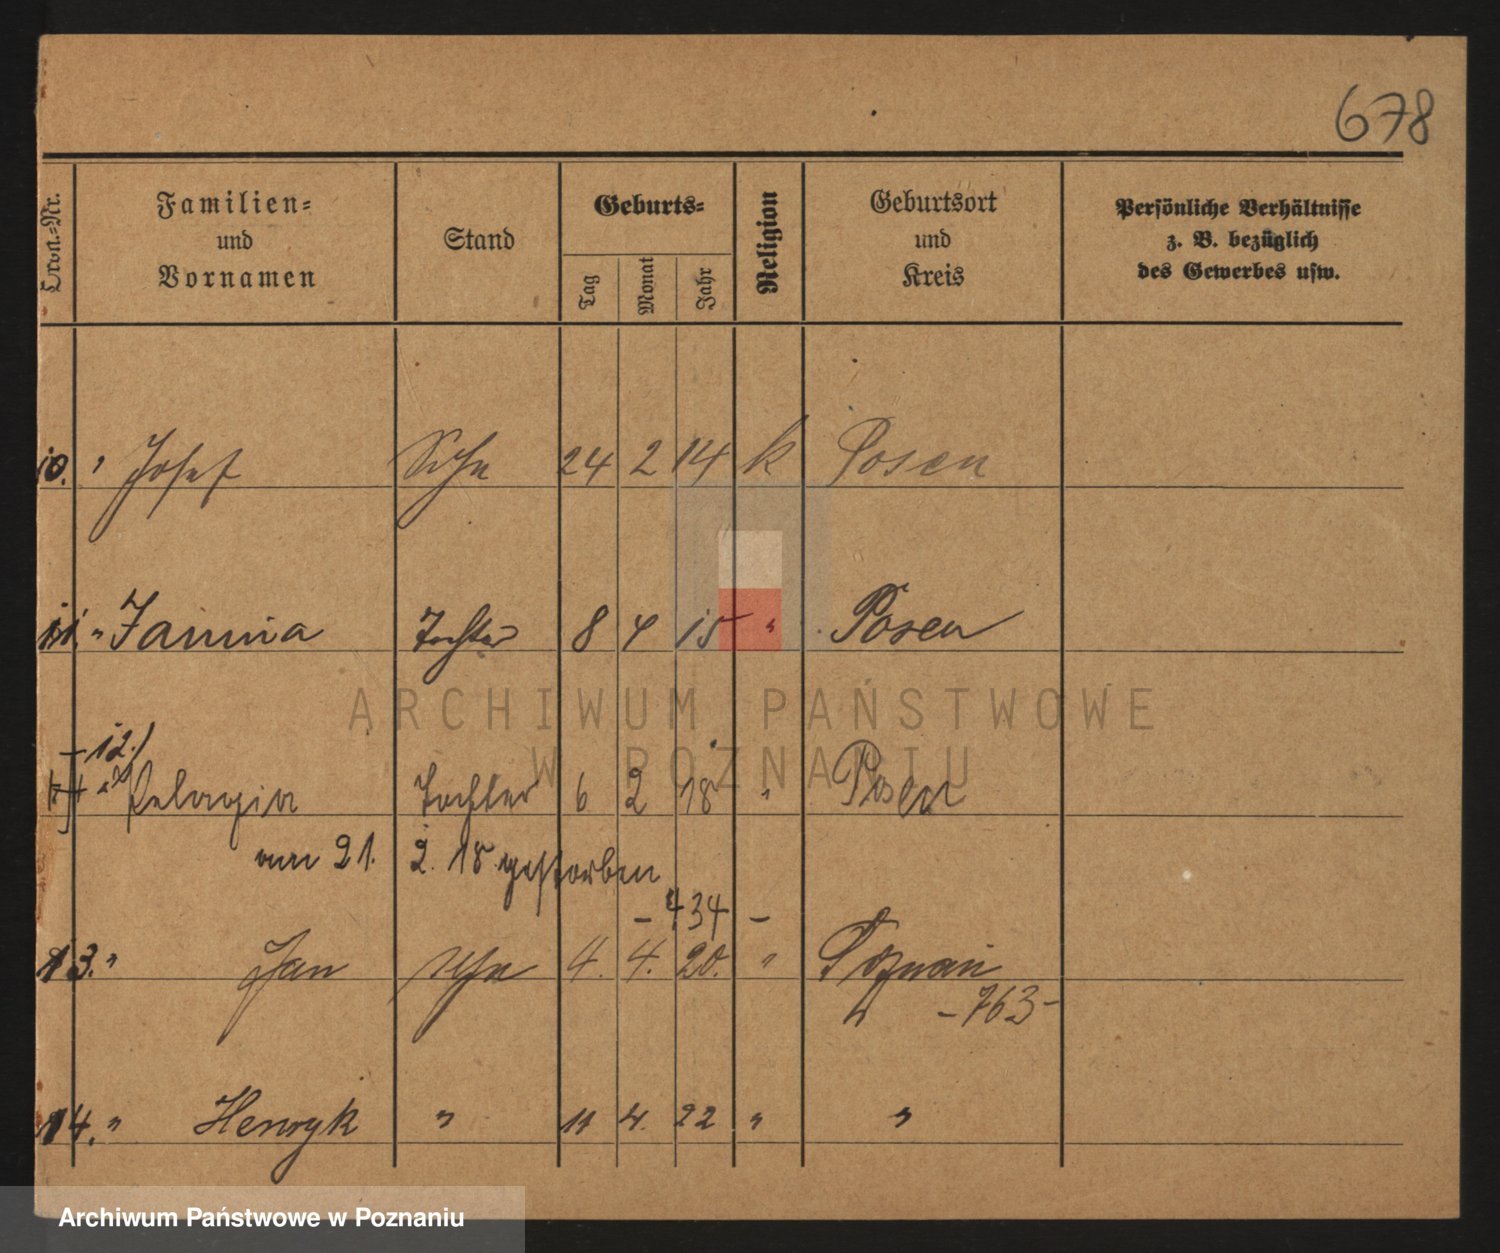 678
Ordn.-Nr.
Familien=
und
Vornamen
Stand
Geburts=
Tag
Monat
Jahr
Religion
Geburtsort
und
Kreis
Persönliche Verhältnisse
z. B. bezüglich
des Gewerbes usw.
10. " Josef Sohn 24 2 14 k Posen
11. " Janina Tochter 8 4 15 " Posen
- 12./
" Pelagia Tochter 6 2 18 " Posen
am 21. 2. 18 gestorben
- 434 -
13. " Jan Sohn 4. 4. 20. " Poznań
- 763 -
14. " Henryk " 11 4. 22 " "
ARCHIWUM PAŃSTWOWE
W POZNANIU
Archiwum Państwowe w Poznaniu